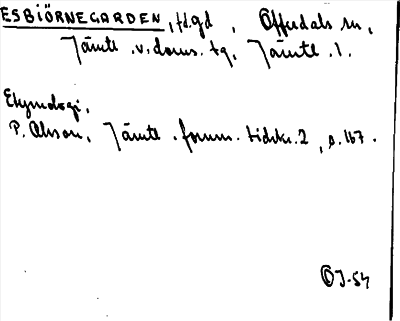 ESBIÖRNEGARDEN, fd. gd, Offerdals sn,
Jämtl. v. doms. tg, Jämtl. l.
Etymologi,
P. Olsson, Jämtl. fornm. tidskr. 2, s. 167.
OJ-54